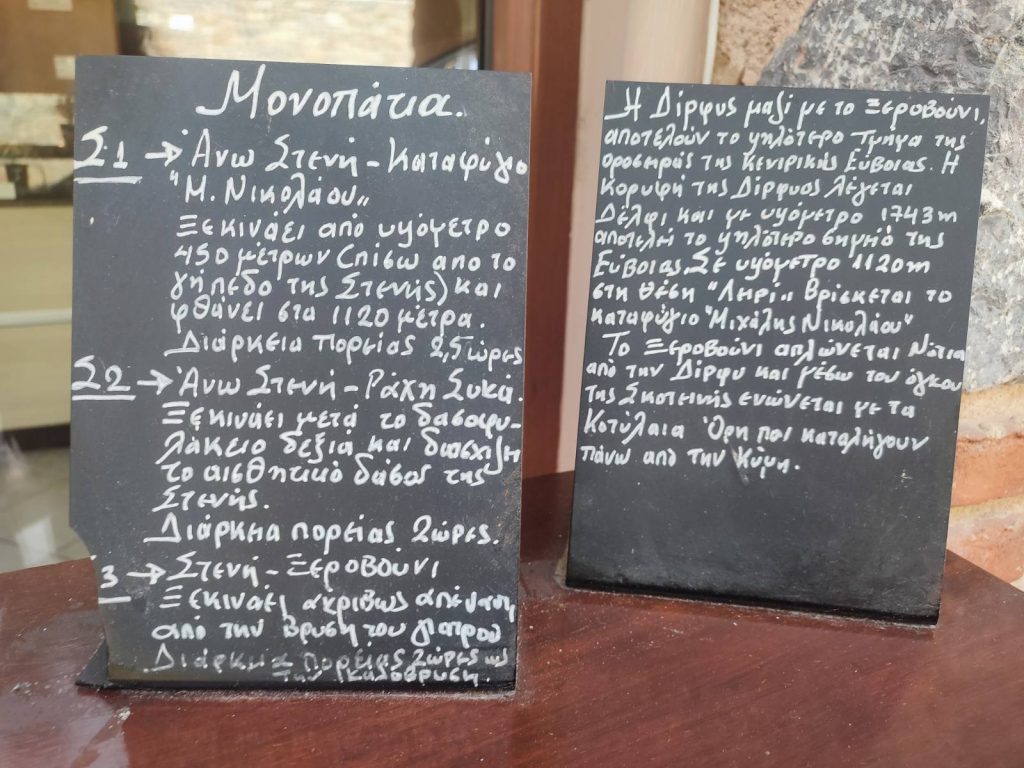 Μονοπάτια.
Σ1 → Άνω Στενή - Καταφύγιο
"Μ. Νικολάου"
Ξεκινάει από υψόμετρο
450 μέτρων (πίσω απο το
γήπεδο της Στενής) και
φθάνει στα 1120 μέτρα.
Διάρκεια πορείας 2,5 ώρες
Σ2 → Άνω Στενή - Ράχη Συκά.
Ξεκινάει μετά το δασοφυ-
λάκειο δεξιά και διασχίζει
το αισθητικό δάσος της
Στενής.
Διάρκεια πορείας 2 ώρες.
3 → Στενή - Ξεροβούνι
Ξεκινάει ακριβώς απέναντι
από την βρύση του γιατρού
Διάρκεια πορείας 2 ώρες ως
την
Η Δίρφυς μαζί με το Ξεροβούνι,
αποτελούν το ψηλότερο τμήμα της
οροσειράς της Κεντρικής Εύβοιας. Η
Κορυφή της Δίρφυος λέγεται
Δέλφι και με υψόμετρο 1743m
αποτελεί το ψηλότερο σημείο της
Εύβοιας. Σε υψόμετρο 1120m
στη θέση "Λιρί" βρίσκεται το
καταφύγιο "Μιχάλης Νικολάου"
Το Ξεροβούνι απλώνεται Νότια
από την Δίρφυ και μέσω του όγκου
της Σκοτεινής ενώνεται με τα
Κοτύλαια Όρη που καταλήγουν
πάνω από την Κύμη.